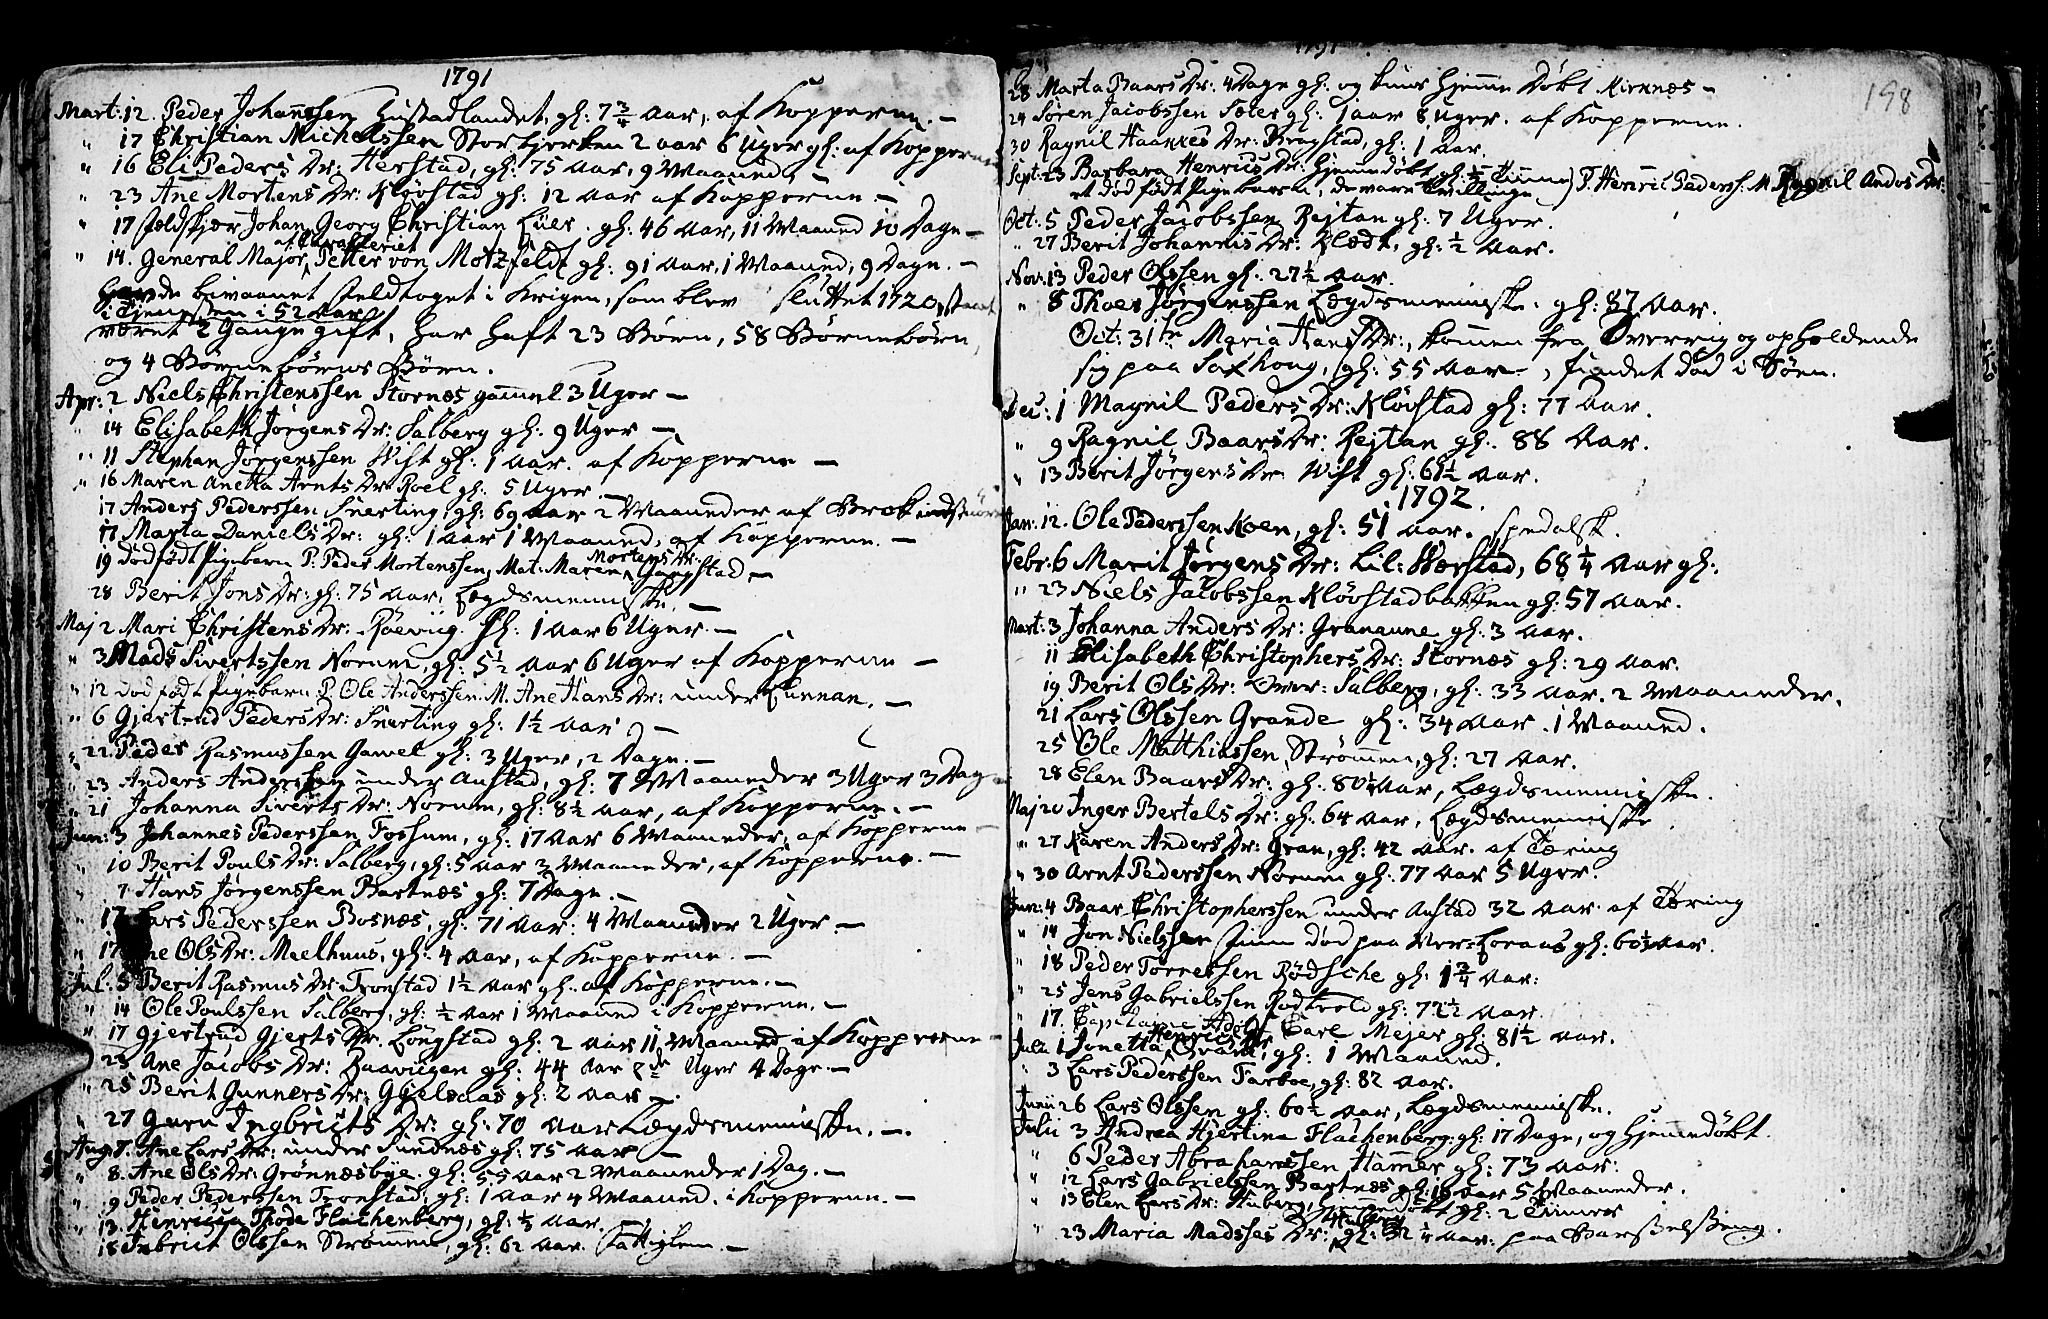 1791
Mart: 12. Peder Johanssen Hustadlandet, gl: 7 3/4 Aar, af Kopperne. —
" 17 Christian Michelssen Storkjerken 2 aar 6 Uger gl: af Kopperne
" 16 Eli Peders Dr: Herstad, gl: 75 Aar, 9 Maaned,
" 23 Ane Mortens Dr: Kløvstad gl: 12 Aar af Kopperne —
" 17 Feldskjær Johan Georg Christian Lüer. gl: 46 Aar, 11 Maaned 10 Dage —
af Infanteriet
" 14. General Major, Petter von Motzfeldt gl: 91 Aar, 1 Maaned, 9 Dage. —
havde bivaanet Feldtoget i Krigen, som blev sluttet 1720, staaet
i Tjenesten i 52 Aar
været 2 Gange gift, har haft 23 Børn, 58 Børnebørn,
og 4 Børnebørns Børn.
Apr: 2 Niels Christenssen Stornæs gammel 3 Uger —
" 14 Elisabeth Jørgens Dr: Salberg gl: 9 Uger —
" 11 Stephan Jørgenssen Wist gl: 1 Aar. af Kopperne —
" 16 Maren Anetta Arnts Dr: Roel gl: 5 Uger —
17 Anders Pederssen Snerting, gl: 69 Aar 2 Maaneder af
17 Marta Daniels Dr: gl: 1 Aar 1 Maaned, af Kopperne. —
19 dødfødt Pigebarn P: Peder Mortenssen, Mat: Maren Mortens Dr: Gangstad —
28 Berit Jons Dr: gl: 75 Aar. Lægdsmenniske. —
Maj 2 Mari Christens Dr: Røeviig. gl: 1 Aar 6 Uger. —
" 3 Mads Sivertssen Norum, gl: 5 1/2 Aar 6 Uger af Kopperne —
" 12 dødfødt Pigebarn P. Ole Anderssen. M. Ane Hans Dr: under Lunnan. —
" 6 Gjertrud Peders Dr: Snerting gl: 1 1/2 Aar —
" 22 Peder Rasmussen Gawel gl: 3 Uger, 2 Dage. —
" 23 Anders Anderssen under Austad, gl: 7 Maaneder 3 Uger 3 Dage
" 21 Johanna Siverts Dr: Norum, gl: 8 1/2 Aar, af Kopperne. —
Jun: 3 Johannes Pederssen Fossum, gl: 17 Aar 6 Maaneder, af Kopperne —
" 10 Berit Pouls Dr: Salberg, gl: 5 Aar 3 Maaneder, af Kopperne. —
" 7 Hans Jørgenssen Bartnæs gl: 7 Dage. —
" 17 Lars Pederssen Bosnæs, gl: 71 Aar. 4 Maaneder 2 Uger —
" 17 Ane Ols Dr: Meelhuus, gl: 4 Aar, af Kopperne. —
Jul: 5 Berit Rasmus Dr: Tronstad 1 1/2 Aar gl: af Kopperne. —
" 14 Ole Poulssen Salberg, gl: 1/2 Aar 1 Maaned i Kopperne. —
" 17 Gjertrud Gjerts Dr. Løngstad gl: 2 Aar 11 Maaned af Kopperne —
" 23 Ane Jacobs Dr: Baaviigen gl: 44 Aar Uger 4 Dage. —
" 25 Berit Gunners Dr: Gjelsaas gl: 2 Aar —
" 27 Guru Ingbricts Dr: gl: 70 Aar Lægdsmenniske. —
Aug: 7. Ane Lars Dr: under Sundnæs gl: 75 Aar —
" 8. Ane Ols Dr: Grønnæsbye gl: 55 Aar 2 Maaneder 1 Dag. —
" 9 Peder Pederssen Tronstad, gl: 1 Aar 4 Maaned. i Kopperne. —
" 13. Henricia Thode Flachenberg, gl: 1/2 Aar. —
18 Inbrict Olssen Strømmen, gl: 62 Aar. Fattiglem. —
1791
198
28 Marta Baars Dr: 4 Dage gl: og kuns hjemme døbt Kirknæs —
24 Søren Jacobssen Sæter gl: 1 aar 8 Uger. af Kopperne.
30 Ragnil Haakkes Dr: Bragstad, gl: 1 Aar.
Sept: 23 Barbara Henrics Dr: hjemmedøbt gl: 1/2 Time } P. Henric Peders: M. Ragnil Andos Dr:
et dødfødt Pigebarn, de vare Tvillinge
Oct: 5 Peder Jacobssen Rejtan gl: 7 Uger.
" 27 Berit Johannis Dr: Klædt, gl: 1/2 Aar.
Nov: 13 Peder Olssen gl: 27 1/2 Aar.
" 8 Thoer Jørgenssen Lægdsmenniske. gl: 87 Aar.
Oct: 31te Maria Hans Dr:, kommen fra Sverrig og opholdende
sig paa Saxhoug, gl: 55 Aar —, fundet død i Søen.
Dec: 1 Magnil Peders Dr: Kløvstad gl: 77 Aar.
" 9 Ragnil Baars Dr: Rejtan gl: 88 Aar.
" 13 Berit Jørgens Dr: Wist gl: 61 1/2 Aar.
1792.
Jan: 12. Ole Pederssen Moen, gl: 51 Aar. spedalsk.
Febr: 6 Marit Jørgens Dr: Lil: Wærstad, 68 1/4 Aar gl:.
" 23 Niels Jacobssen Kløvstadbakken gl: 57 Aar.
Mart: 3 Johanna Anders Dr: Granaune gl: 3 Aar.
11 Elisabeth Christophers Dr: Stornæs gl: 29 Aar.
19 Berit Ols Dr: Over: Salberg, gl: 33 Aar. 2 Maaneder.
21 Lars Olssen Grande gl: 34 Aar. 1 Maaned.
25 Ole Matthiassen, Strømmen, gl: 27 Aar.
28 Elen Baars Dr: gl: 80 1/4 Aar, Lægdsmenniske.
Maj 20 Inger Bertels Dr: gl: 64 Aar, Lægdsmenniske
" 27 Karen Anders Dr: Gran, gl: 42 Aar. af Tæring
" 30 Arnt Pederssen Norum gl: 77 Aar 5 Uger.
Jun: 4 Baar Christopherssen under Austad 32 Aar. af Tæring
" 14 Jon Nielssen funn død paa Ver: Loraas gl: 60 1/2 Aar.
" 18 Peder Torressen Rødsche gl: 1 3/4 Aar:
" 25 Jens Gabrielssen Rodtvold gl: 72 1/2 Aar.
" 17. Capitaine Adolf Carl Mejer gl: 81 1/2 Aar.
Julii 1 Jonetta Henrics Dr: Qvam, gl: 1 Maaned.
" 3 Lars Pederssen Tarboe, gl: 82 Aar.
Junii 26 Lars Olssen gl: 60 1/2 Aar, Lægdsmenniske.
Julii 3 Andrea Hjertina Flachenberg: gl: 17 Dage, og hjemmedøbt.
" 6 Peder Abrahamssen Hammer gl: 73 Aar.
" 12 Lars Gabrielssen Bartnæs gl: 16 Aar 5 Maaneder.
" 13 Elen Lars Dr: Huberg, hjemmedøbt gl: 2 Timer
" 23 Maria Madsses Dr: gl: 32 1/4 Aar: paa Barselseng.